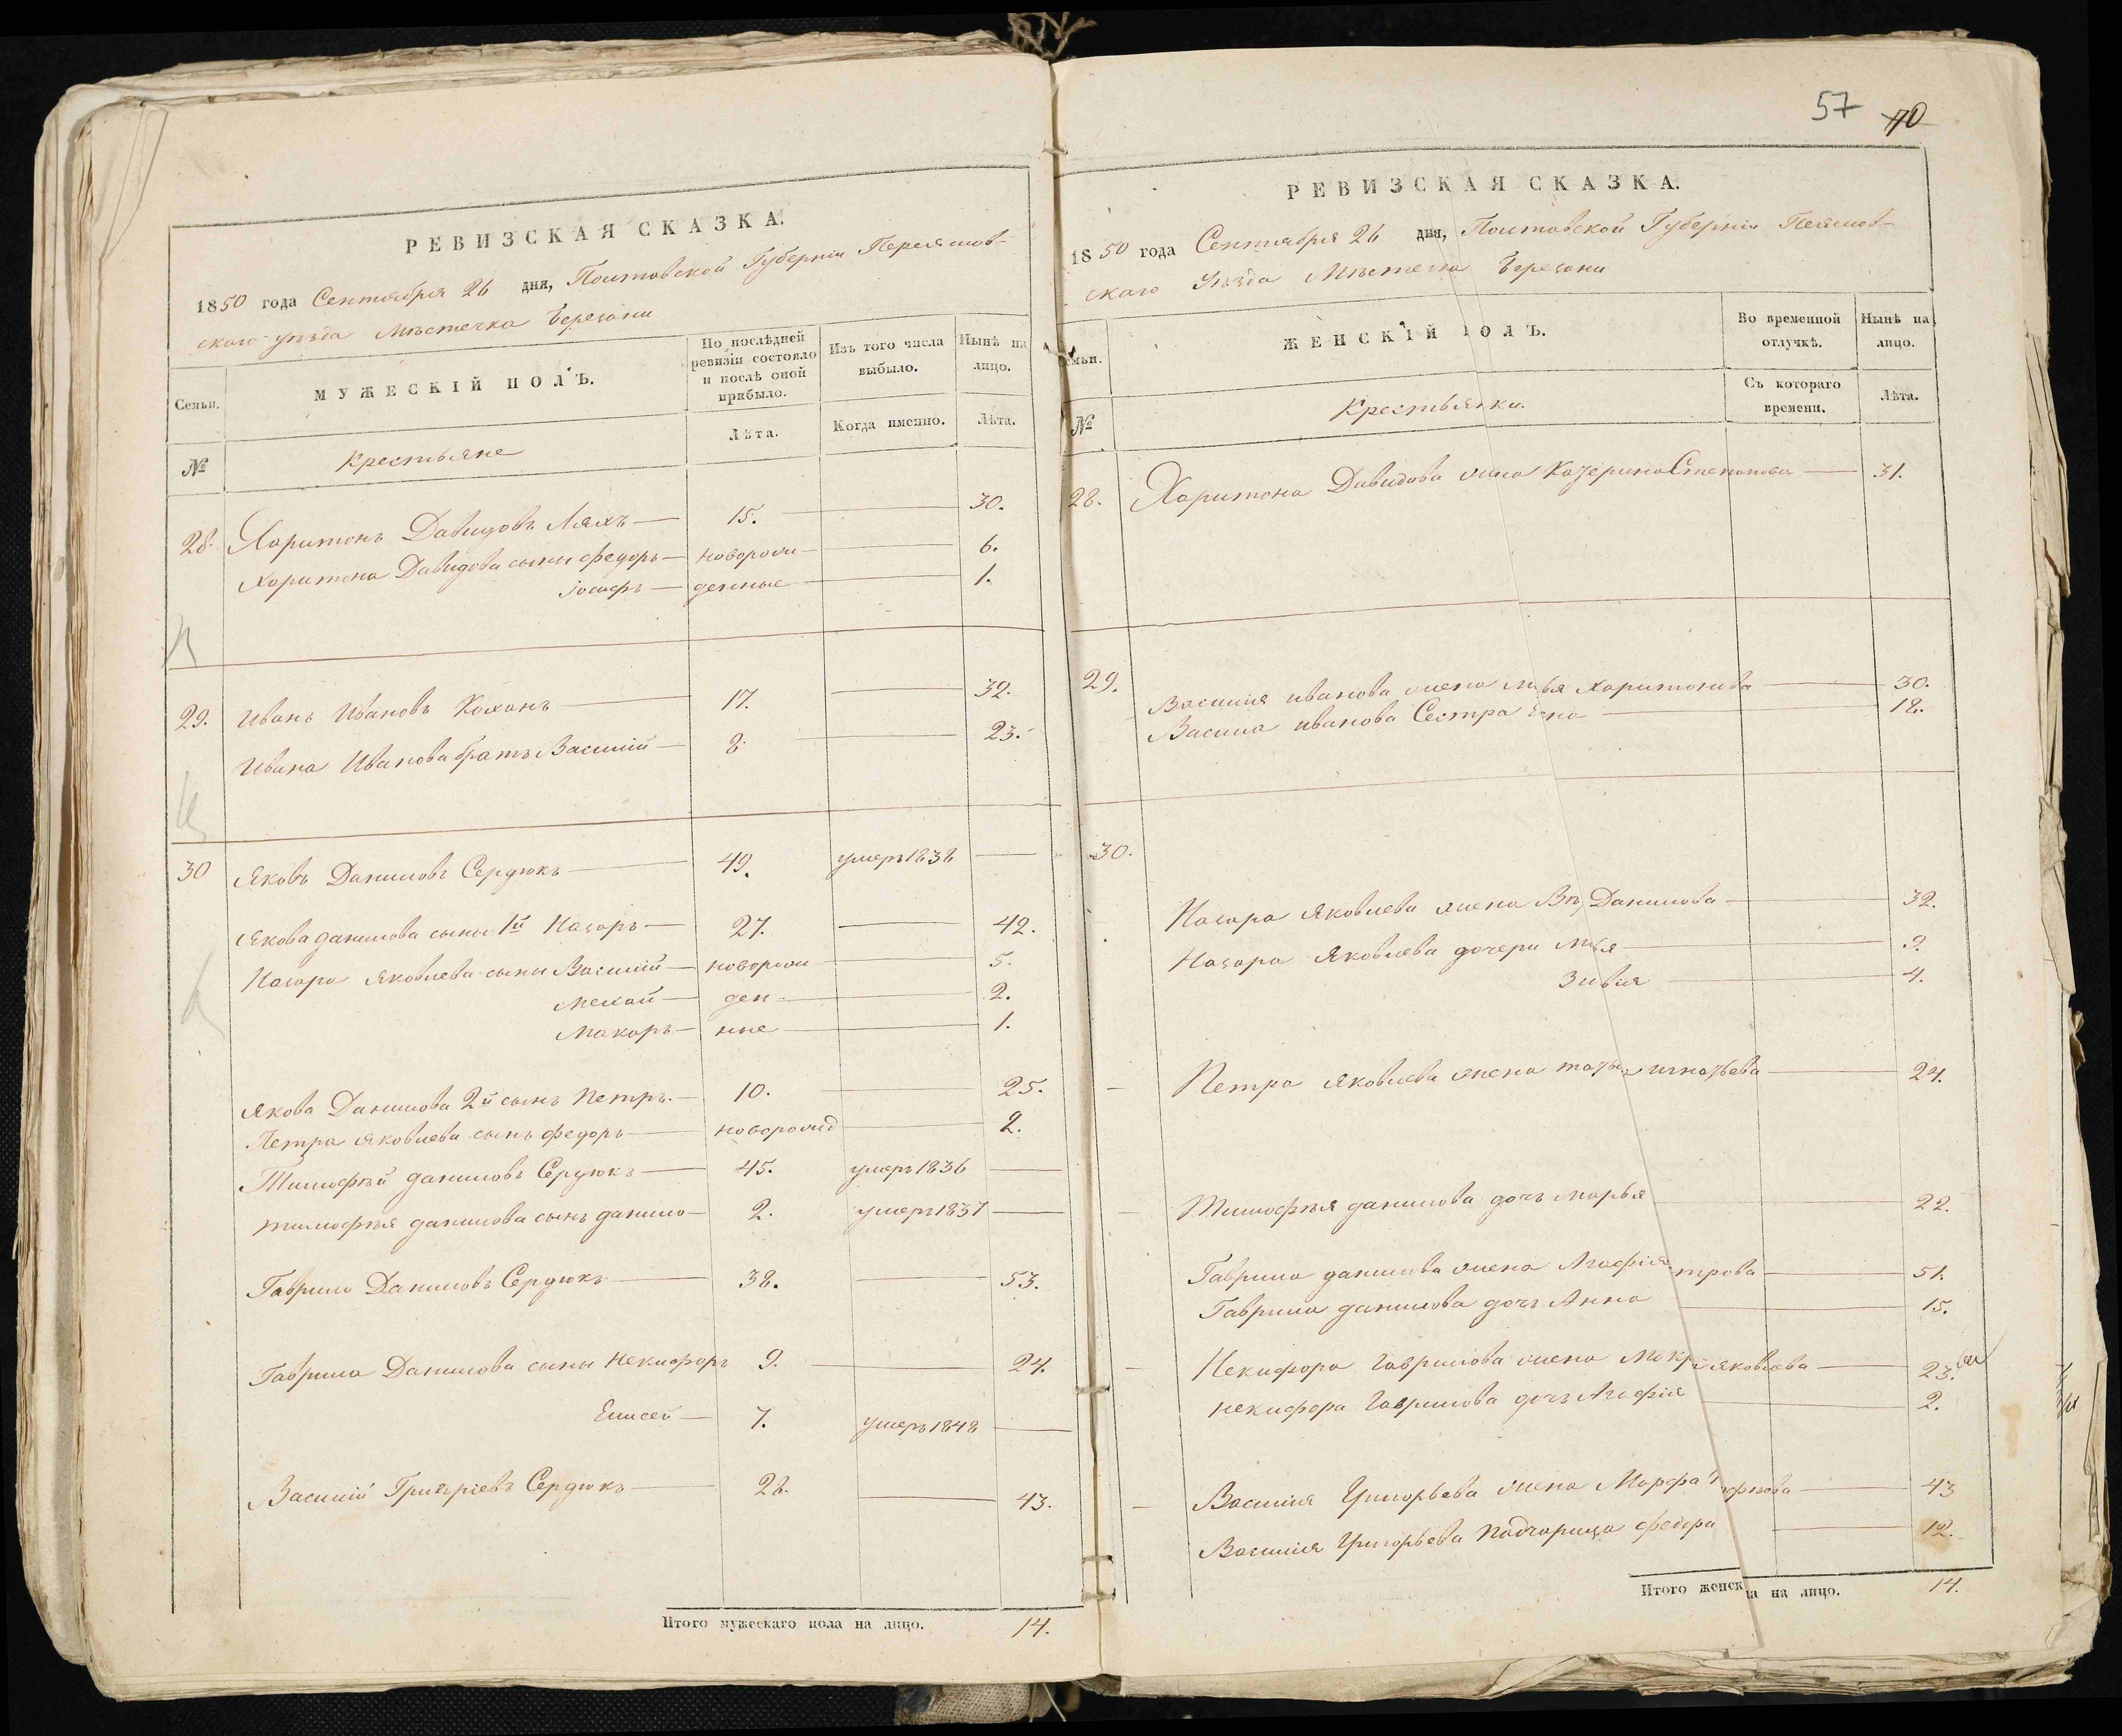 57 70
РЕВИЗСКАЯ СКАЗКА.
1850 года Сентября 26 дня, Полтавской Губерніи Переяслов-
скаго уѣзда Мѣстечка Березани
Семьи.
МУЖЕСКІЙ ПОЛЪ.
По послѣдней ревизіи состояло и послѣ оной прибыло.
Изъ того числа выбыло.
Нынѣ на лицо.
№
Крестьяне
Лѣта.
Когда именно.
Лѣта.
28. Харитонъ Давидовъ Ляхъ — 15. — 30.
Харитона Давидова сыны Федоръ — новорож — 6.
Іосифъ — денные — 1.
29. Иванъ Ивановъ Коханъ — 17. — 32.
Ивана Иванова братъ Василій — 8. — 23.
30 Яковъ Даниловъ Сердюкъ — 49. умеръ 1838 —
Якова данилова сыны 1й Назаръ — 27. — 42.
Назара Яковлева сыны Василій — новорож — 5.
Мехай — ден — 2.
Макаръ — ные — 1.
Якова Данилова 2й сынъ Петръ — 10. — 25.
Петра Яковлева сынъ Федоръ — новорожд — 2.
Тимофѣй даниловъ Сердюкъ — 45. умеръ 1836 —
тимофѣя данилова сынъ данило — 2. умеръ 1837 —
Гаврило Даниловъ Сердюкъ — 38. — 53.
Гаврила Данилова сыны Некифоръ 9. — 24.
Елисей — 7. умеръ 1848 —
Василій Григоріевъ Сердюкъ — 28. — 43.
Итого мужескаго пола на лицо. 14.
РЕВИЗСКАЯ СКАЗКА.
1850 года Сентября 26 дня, Полтавской Губерніи
скаго Уѣзда Мѣстечка Березани
ЖЕНСКІЙ ПОЛЪ.
Во временной отлучкѣ.
Нынѣ на лицо.
№
Крестьянки.
Съ котораго времени.
Лѣта.
28. Харитона Давидова жена Катерина Степанова — 31.
29. Василія Иванова жена Харитонова — 30.
Василия Иванова Сестра — 18.
30.
Назара Яковлева жена Данилова — 32.
Назара Яковлева дочери — 9.
— 4.
Петра Яковлева жена игнатьева — 24.
Тимофѣя данилова дочь марья — 22.
Гаврила данилова жена Агафія трова — 51.
Гаврила данилова дочь Анна — 15.
Некифора гаврилова жена яковлева — 23.
некифора гаврилова дочь Агафія — 2.
Василія Григорьева жена Марфа — 43
Василія Григорьева падчерица федора — 12.
Итого женск а на лицо. 14.